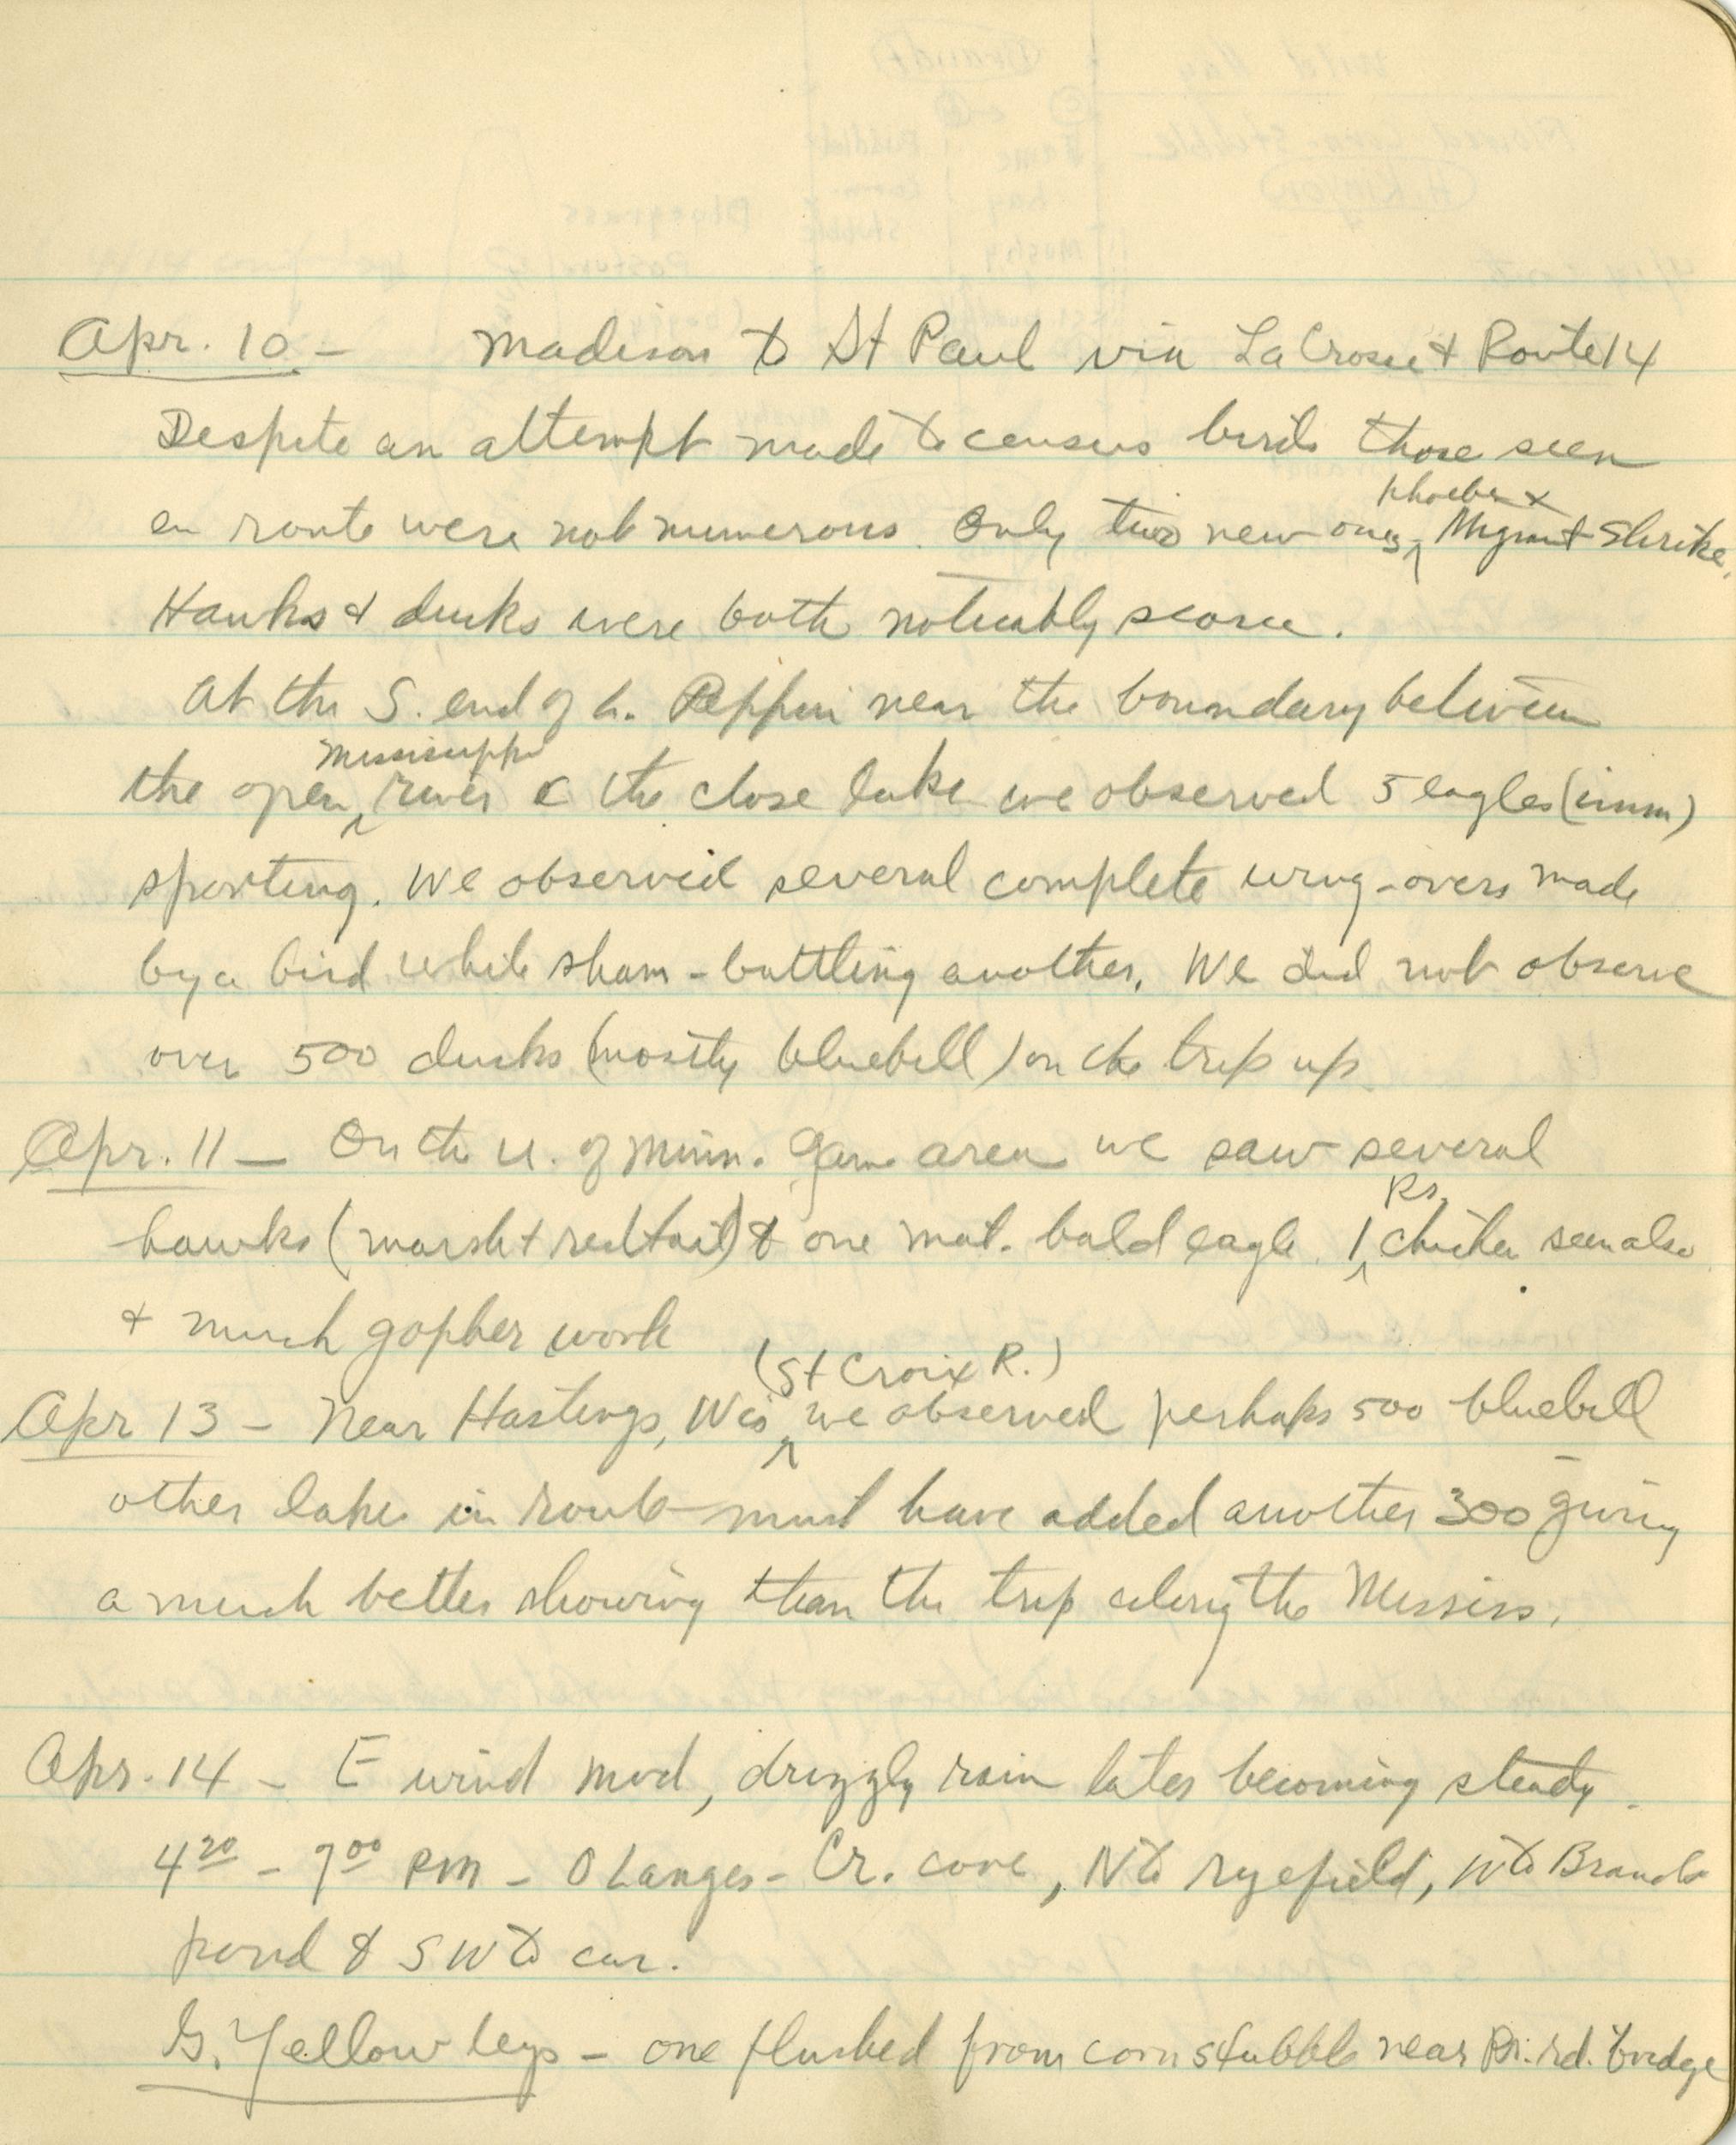 Apr. 10 - Madison to St Paul via LaCrosse & Route 14
Despite an attempt made to census birds those seen
en route were not numerous. Only two new ones, phoebe & Migrant Shrike.
Hawks & ducks were both noticably scarce.
At the S. end of L. Peppin near the boundary between
the open Mississippi river & the close lake we observed 5 eagles (imm)
sporting. We observed several complete wing-overs made
by a bird while sham-battling another. We did not observe
over 500 ducks (mostly bluebill) on the trip up
Apr. 11 - On the U. of Minn. Game area we saw several
hawks (marsh & redtail) & one mat. bald eagle. 1 Pr. chicken seen also
& much gopher work
Apr 13 - Near Hastings, Wis (St Croix R.) we observed perhaps 500 bluebill
other lakes in route must have added another 300 giving
a much better showing than the trip along the Mississ.
Apr. 14 - E wind mod, drizzly rain later becoming steady.
4 20 - 7 00 PM - O Langes - Cr. cove, N to ryefield, W to Brandt
pond & SW to car.
G. Yellow legs - one flushed from corn stubble near rd. bridge